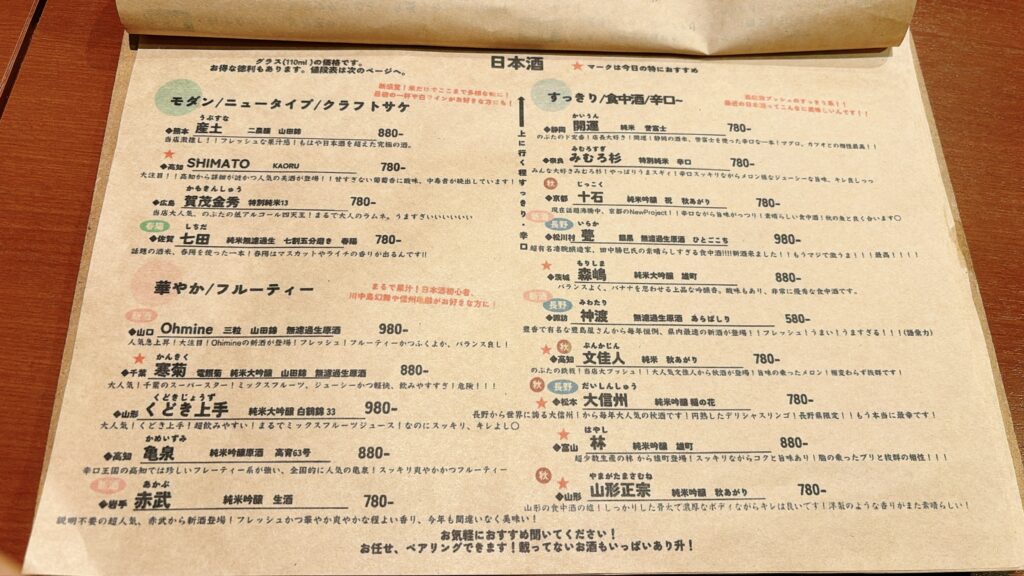 グラス(110ml)の価格です。
お得な徳利もあります。値段表は次のページへ。
日本酒
★ マークは今日の特におすすめ
モダン/ニュータイプ/クラフトサケ
うぶすな
◆熊本 産土 二農醸 山田錦 880-
当店激推し!!フレッシュな果汁感!もはや日本酒を超えた究極の酒。
★
◆高知 SHIMATO KAORU 780-
大注目!!高知から詳細が謎かつ人気の美酒が登場!!甘すぎない葡萄香に酸味、中毒者が続出しています!
かもきんしゅう
◆広島 賀茂金秀 特別純米13 780-
当店大人気、のぶたの低アルコール四天王!まるで大人のラムネ。うますぎいいいいい
春陽
しちだ
◆佐賀 七田 純米無濾過生 七割五分磨き 春陽 780-
話題の酒米、春陽を使った一本!春陽はマスカットやライチの香りが出るんです!!
華やか/フルーティー
まるで果汁!日本酒初心者、
川中島幻舞や信州亀齢がお好きな方に!
新酒
◆山口 Ohmine 三粒 山田錦 無濾過生原酒 980-
人気急上昇!大注目!Ohmineの新酒が登場!フレッシュ!フルーティーかつふくよか、バランス良し!
かんきく
★
◆千葉 寒菊 電照菊 純米大吟醸 山田錦 無濾過生原酒 880-
大人気!千葉のスーパースター!ミックスフルーツ、ジューシーかつ軽快、飲みやすすぎ!危険!!!
くどきじょうず
◆山形 くどき上手 純米大吟醸 白鶴錦 33 980-
大人気!くどき上手!超飲みやすい!まるでミックスフルーツジュース!なのにスッキリ、キレよし○
かめいずみ
◆高知 亀泉 純米吟醸原酒 高育63号 880-
辛口王国の高知では珍しいフレーティー系が強い、全国的に人気の亀泉!スッキリ爽やかかつフルーティー
新酒
あかぶ
◆岩手 赤武 純米吟醸 生酒 780-
説明不要の超人気、赤武から新酒登場!フレッシュかつ華やか爽やかな程よい香り、今年も間違いなく美味い!
上に行く程すっきり・辛口
すっきり/食中酒/辛口~
かいうん
◆静岡 開運 純米 誉富士 780-
のぶたのド定番!店長大好き!開運!静岡の酒米、誉富士を使った辛口な一本!マグロ、カツオとの相性最高!!
みむろすぎ
◆奈良 みむろ杉 特別純米 辛口 780-
みんな大好きみむろ杉!やっぱりうまスギィ!辛口スッキリながらメロン様なジューシーな旨味、キレ良しっっ
秋
じっこく
◆京都 十石 純米吟醸 祝 秋あがり 780-
現在話題沸騰中、京都のNewProject!!辛口ながら旨味がっつり!素晴らしい食中酒!秋の魚と良く合います○
長野
いらか
◆松川村 甍 銀黒 無濾過生原酒 ひとごこち 980-
超有名凄腕醸造家、田中勝巳氏の素晴らしすぎる食中酒!!!!新酒来ました!!もうマジで激うま!!!最高!!!!
もりしま
★
◆茨城 森嶋 純米大吟醸 雄町 880-
バランスよく、バナナを思わせる上品な吟醸香。酸味もあり、非常に優秀な食中酒です。
新酒 長野
みわたり
◆諏訪 神渡 純米吟醸 無濾過生原酒 あらばしり 580-
豊香で有名な豊島屋さんから毎年恒例、県内最速の新酒が登場!!フレッシュ!うまい!うますぎる!!!(語彙力)
秋
ぶんかじん
★
◆高知 文佳人 純米 秋あがり 780-
のぶたの鉄板!当店大プッシュ!!大人気文佳人から秋酒が登場!旨味の乗ったメロン!相変わらず抜群です!
秋 長野
だいしんしゅう
★
◆松本 大信州 純米吟醸 稲の花 780-
長野から世界に誇る大信州!から毎年大人気の秋酒です!円熟したデリシャスリンゴ!長野県限定!!もう本当に最幸です!
はやし
★
◆富山 林 純米吟醸 雄町 880-
超少数生産の林 から雄町登場!スッキリながらコクと旨味あり!脂の乗ったブリと抜群の相性!!!
秋
やまがたまさむね
★
◆山形 山形正宗 純米吟醸 秋あがり 780-
山形の食中酒の雄!しっかりした骨太で濃厚なボディながらキレは良いです!洋梨のような香りがまた素晴らしい!
お気軽におすすめ聞いてください!
お任せ、ペアリングできます!載ってないお酒もいっぱいあり升!